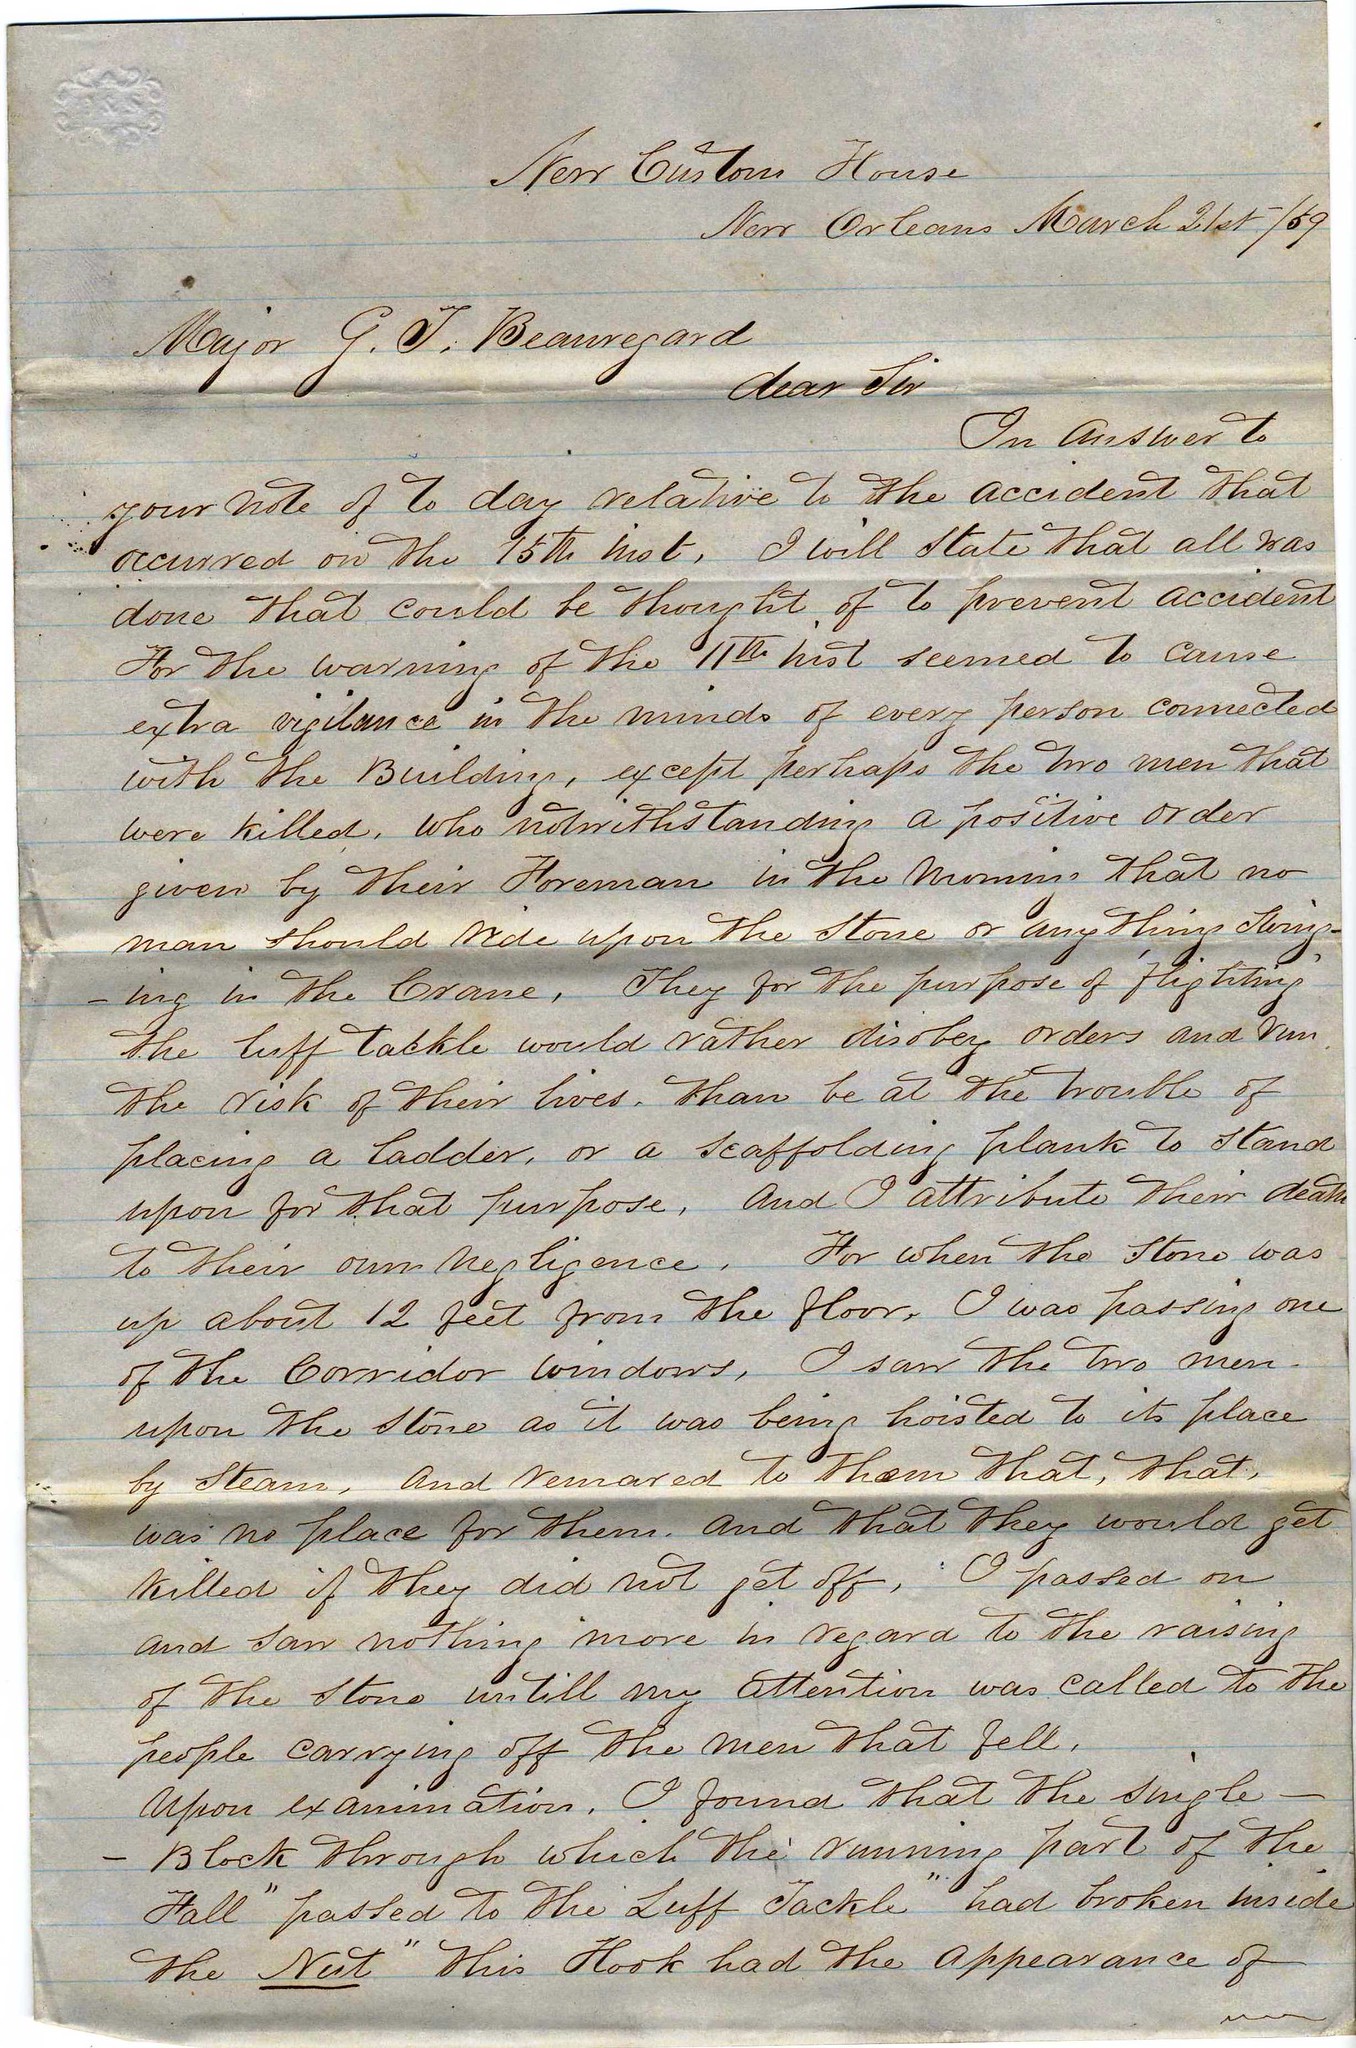 New Custom House
New Orleans March 21st /59
Major G. T. Beauregard
dear Sir
In answer to
your note of to day relative to the accident that
occurred on the 15th inst, I will state that all was
done that could be thought of to prevent accident
For the warning of the 11th inst seemed to cause
extra vigilance in the minds of every person connected
with the Building, except perhaps the two men that
were killed, who notwithstanding a positive order
given by their Foreman in the morning that no
man should ride upon the Stone or any thing swing-
-ing in the Crane, They for the purpose of "flighting"
the luff tackle would rather disobey orders and run
the risk of their lives, than be at the trouble of
placing a ladder, or a scaffolding plank to stand
upon for that purpose, And I attribute their death
to their own negligence, For when the Stone was
up about 12 feet from the floor, I was passing one
of the Corridor windows, I saw the two men
upon the Stone as it was being hoisted to its place
by Steam, And remared to them that, that,
was no place for them, and that they would get
killed if they did not get off, I passed on
and saw nothing more in regard to the raising
of the Stone untill my attention was called to the
people carrying off the men that fell,
Upon examination, I found that the single -
- Block through which the running part of the
Fall" passed to the Luff Tackle" had broken inside
the Nut" this Hook had the appearance of